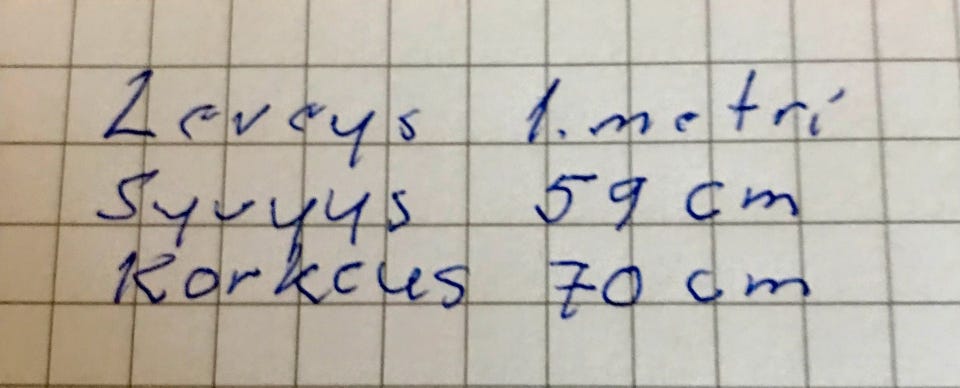 Leveys 1. metri
Syvyys 59 cm
Korkeus 70 cm